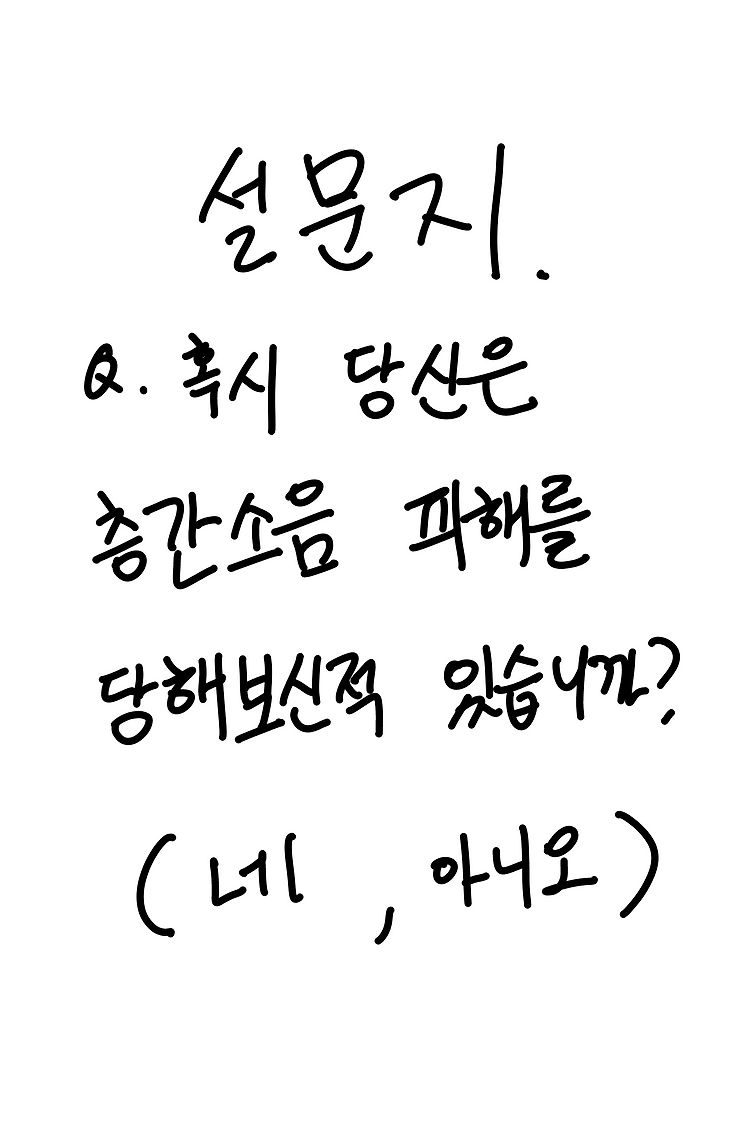 설문지.
Q. 혹시 당신은
층간소음 피해를
당해보신적 있습니까?
(네 , 아니오)